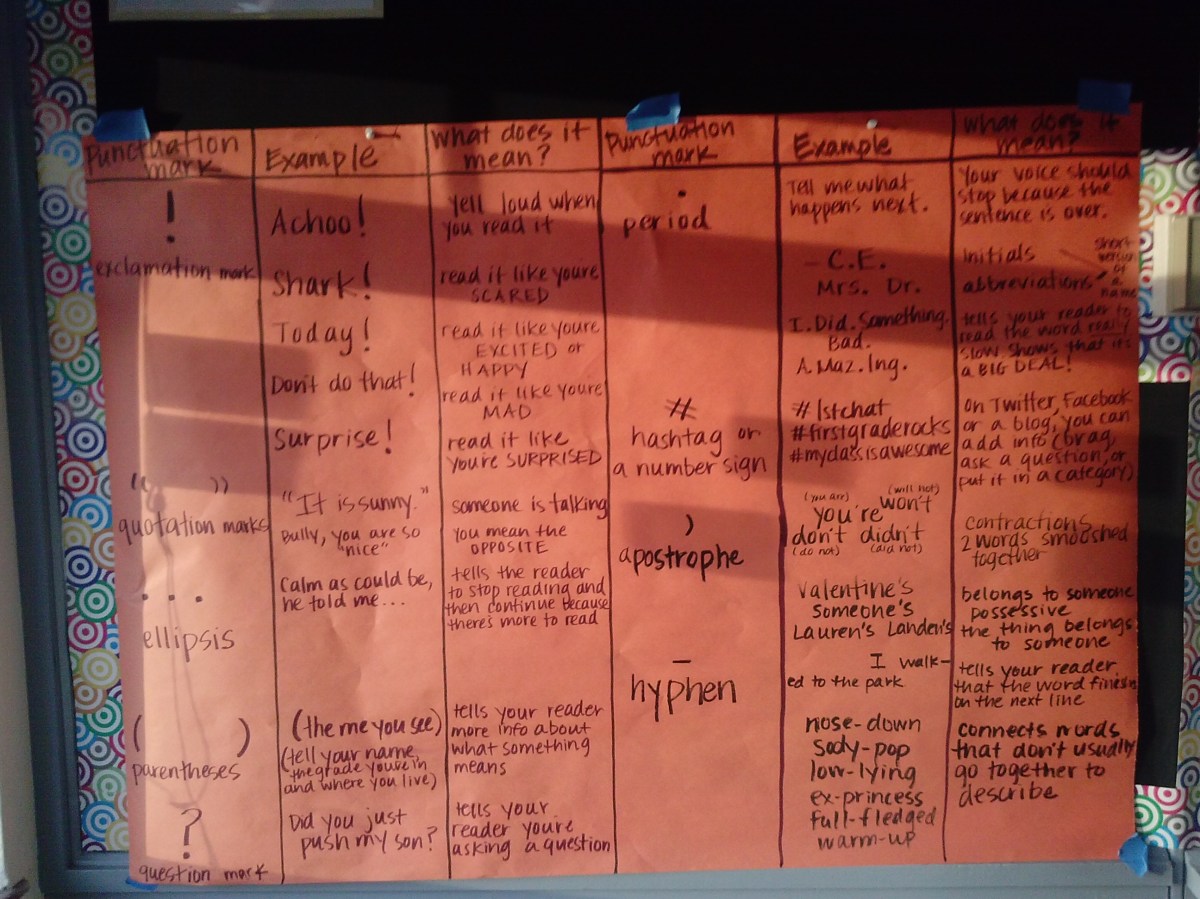 Punctuation
mark
Example
What does it
mean?
!
exclamation mark
Achoo!
Yell loud when
you read it
Shark!
read it like you're
SCARED
Today!
read it like youre
EXCITED or
HAPPY
Don't do that!
read it like you're
MAD
Surprise!
read it like
you're SURPRISED
“ ”
quotation marks
"It is sunny."
someone is talking
Bully, you are so
"nice"
You mean the
OPPOSITE
...
ellipsis
Calm as could be,
he told me...
tells the reader
to stop reading and
then continue because
there's more to read
( )
parentheses
(the me you see)
(tell your name,
the grade you're in
and where you live)
tells your reader
more info about
what something
means
?
question mark
Did you just
push my son?
tells your
reader you're
asking a question
Punctuation
mark
Example
What does it
mean?
.
period
Tell me what
happens next.
Your voice should
stop because the
sentence is over.
C.E.
Initials
Mrs. Dr.
abbreviations
short
version
of
a
name
I. Did. Something.
Bad.
A. Maz. Ing.
tells your reader to
read the word really
slow. Shows that it's
a BIG DEAL!
#
hashtag or
a number sign
#1stchat
#firstgraderocks
#myclassisawesome
On Twitter, Facebook
or a blog, you can
add info (brag,
ask a question, or
put it in a category)
’
apostrophe
(you are) (will not)
you're won't
don't didn't
(do not) (did not)
contractions
2 words smooshed
together
Valentine's
someone's
Lauren's Landen's
belongs to someone
possessive
the thing belongs
to someone
-
hyphen
I walk-
ed to the park
tells your reader
that the word finishes
on the next line
nose-down
Sody-pop
low-lying
ex-princess
full-fledged
warm-up
connects words
that don't usually
go together to
describe